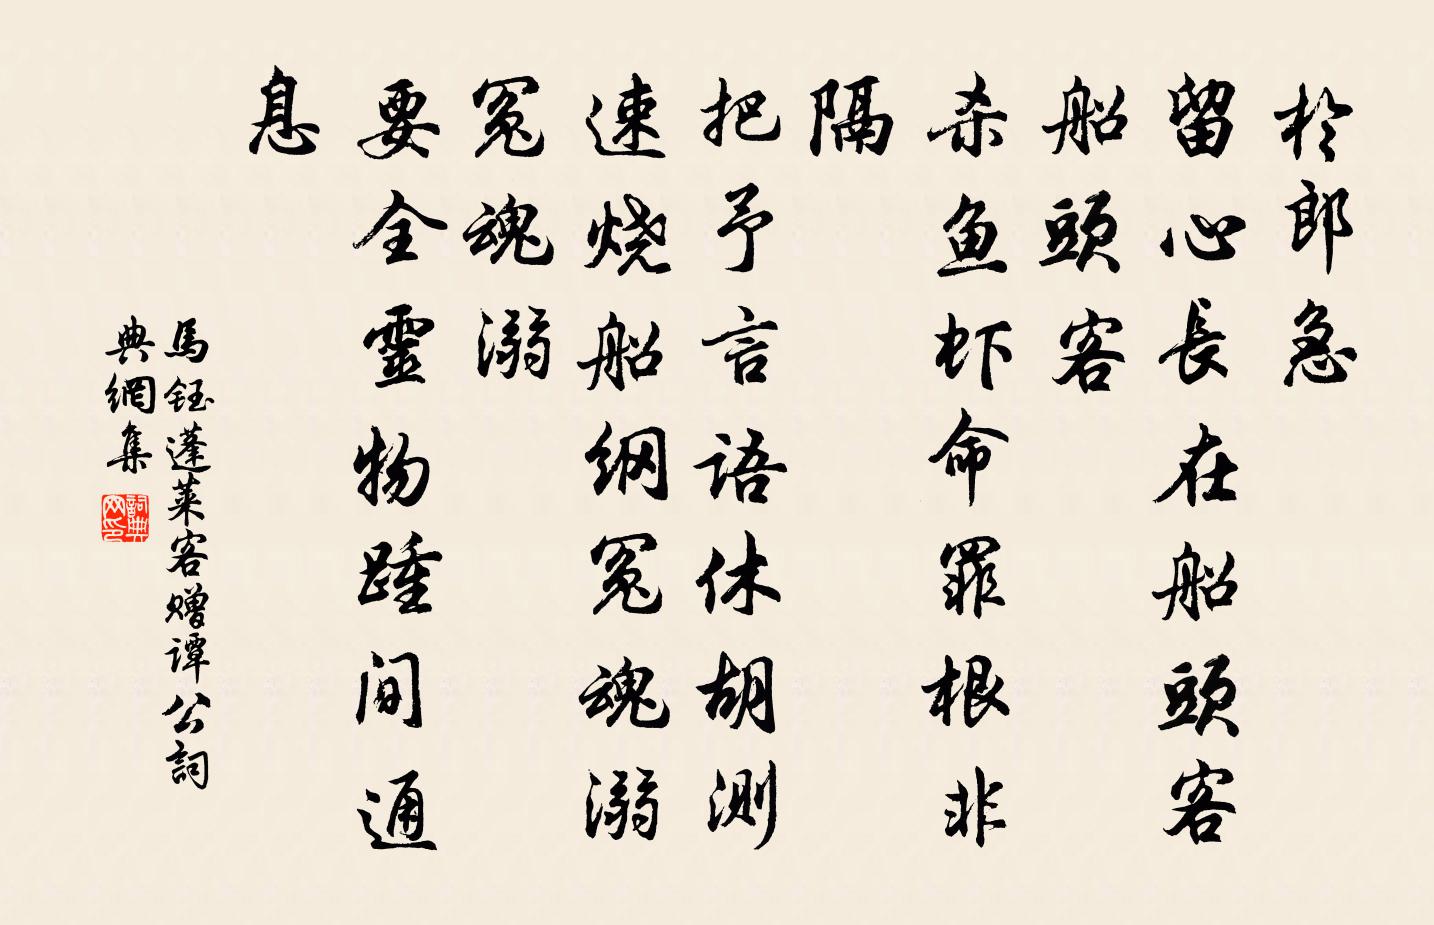 於郎急
留心長在船頭客
船頭客
杀鱼虾命罪根非
隔
把予言語休胡測
速烧船網冤魂溺
冤魂溺
要全靈物踵间通
息
馬鈺蓬莱客赠谭公詞
典網集
詞典
网印